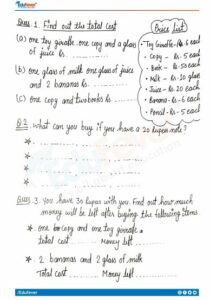 Edufever
Ques. 1. Find out the total Cost
(a) one toy giraffe one copy and a glass
of juice Rs. - - - - - -
(b) one glass of milk one glass of juice
and 2 bananas Rs. - - - - - - -
(c) one copy and two books Rs - - - - - -
Price List
Toy Giraffe - Rs 6 each
Copy - Rs - 5 each
Book - Rs - 50 each
Milk - Rs - 20 glass
Juice Rs 20 each
Banana - Rs - 6 each
Pencil - Rs - 5 each
Q.2 what can you buy if you have a 20 rupee note?
Ques 3. you have 30 rupes with you. Find out how much
money will be left after buying the following items.
* one copy and one toy giraffe.
total cost .... Money left ....
* 2 bananas and 2 glass of milk
Total cost .... Money left ....
/Edufever